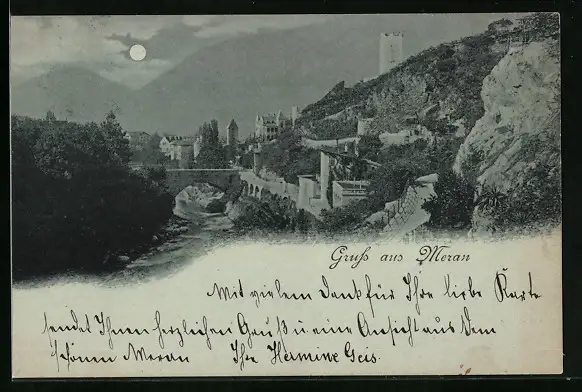 Gruß aus Meran
Mit vielem Dank für Ihre liebe Karte
sendet Ihnen herzlichen Gruß u eine Ansicht aus dem
schönen Meran Ihre Hermine Geis.